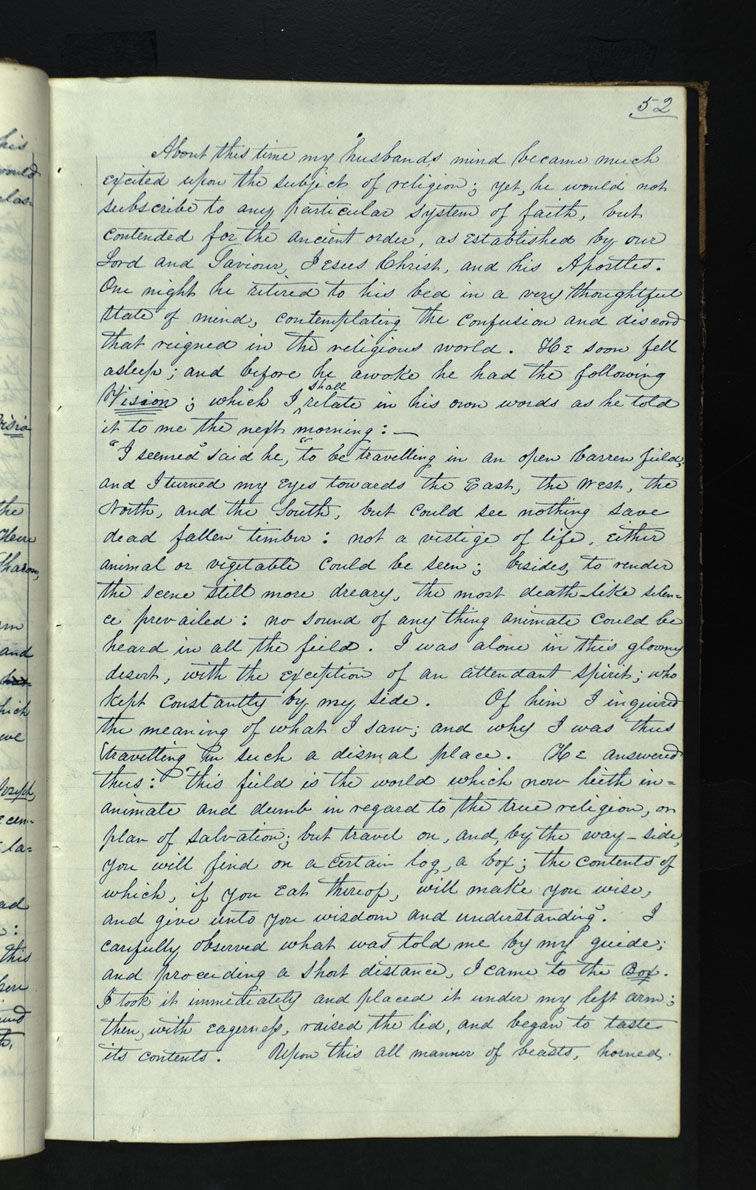 52
About this time my husbands mind became much
excited upon the subject of religion; yet, he would not
subscribe to any particular system of faith, but
contended for the ancient order, as established by our
Lord and Saviour, Jesus Christ, and his Apostles.
One night he retired to his bed in a very thoughtful
state of mind, contemplating the confusion and discord
that reigned in the religious world. He soon fell
asleep; and before he awoke he had the following
Vision; which I shall relate in his own words as he told
it to me the next morning:—
"I seemed" said he, "to be travelling in an open barren field,
and I turned my eyes towards the East, the West, the
North, and the South, but could see nothing save
dead fallen timber: not a vestige of life, either
animal or vegetable could be seen; besides, to render
the scene still more dreary, the most death-like silen-
ce prevailed: no sound of any thing animate could be
heard in all the field. I was alone in this gloomy
desert, with the exception of an attendant spirit; who
kept constantly by my side. Of him I inquired
the meaning of what I saw; and why I was thus
travelling in such a dismal place. He answered
thus: "this field is the world which now lieth in=
animate and dumb in regard to the true religion, or
plan of salvation; but travel on, and, by the way-side,
you will find on a certain log, a box; the contents of
which, if you eat thereof, will make you wise,
and give unto you wisdom and understanding". I
carefully observed what was told me by my guide;
and proceeding a short distance, I came to the Box.
I took it immediately and placed it under my left arm;
then, with eagerness, raised the lid, and began to taste
its contents. Upon this all manner of beasts, horned